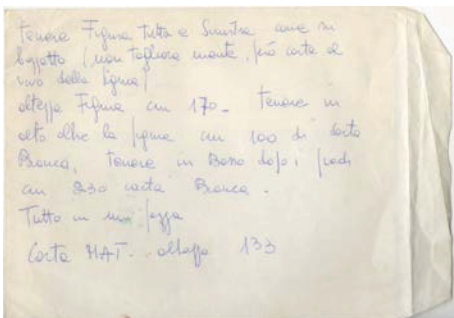 Tenere Figura Tutta a Sinistra come su
bozzetto (non togliere niente, può carta al
vivo della figura)
altezza Figura cm 170 - Tenere in
alto oltre la figura cm 100 di carta
Bianca, Tenere in Basso dopo i piedi
cm 230 carta Bianca.
Tutto in un pezzo
Carta MAT. altezza 133